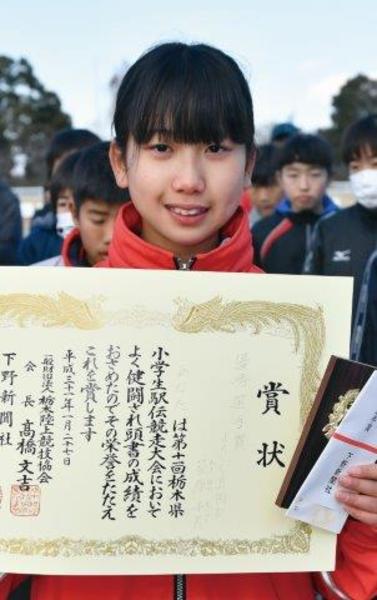 賞状
優秀選手賞
は第十一回栃木県
小学生駅伝競走大会において
よく健闘され頭書の成績を
おさめたのでその栄誉をたたえ
これを賞します
平成三十一年一月二十七日
一般財団法人栃木陸上競技協会
会長 高橋文吉
下野新聞社
下野新聞社